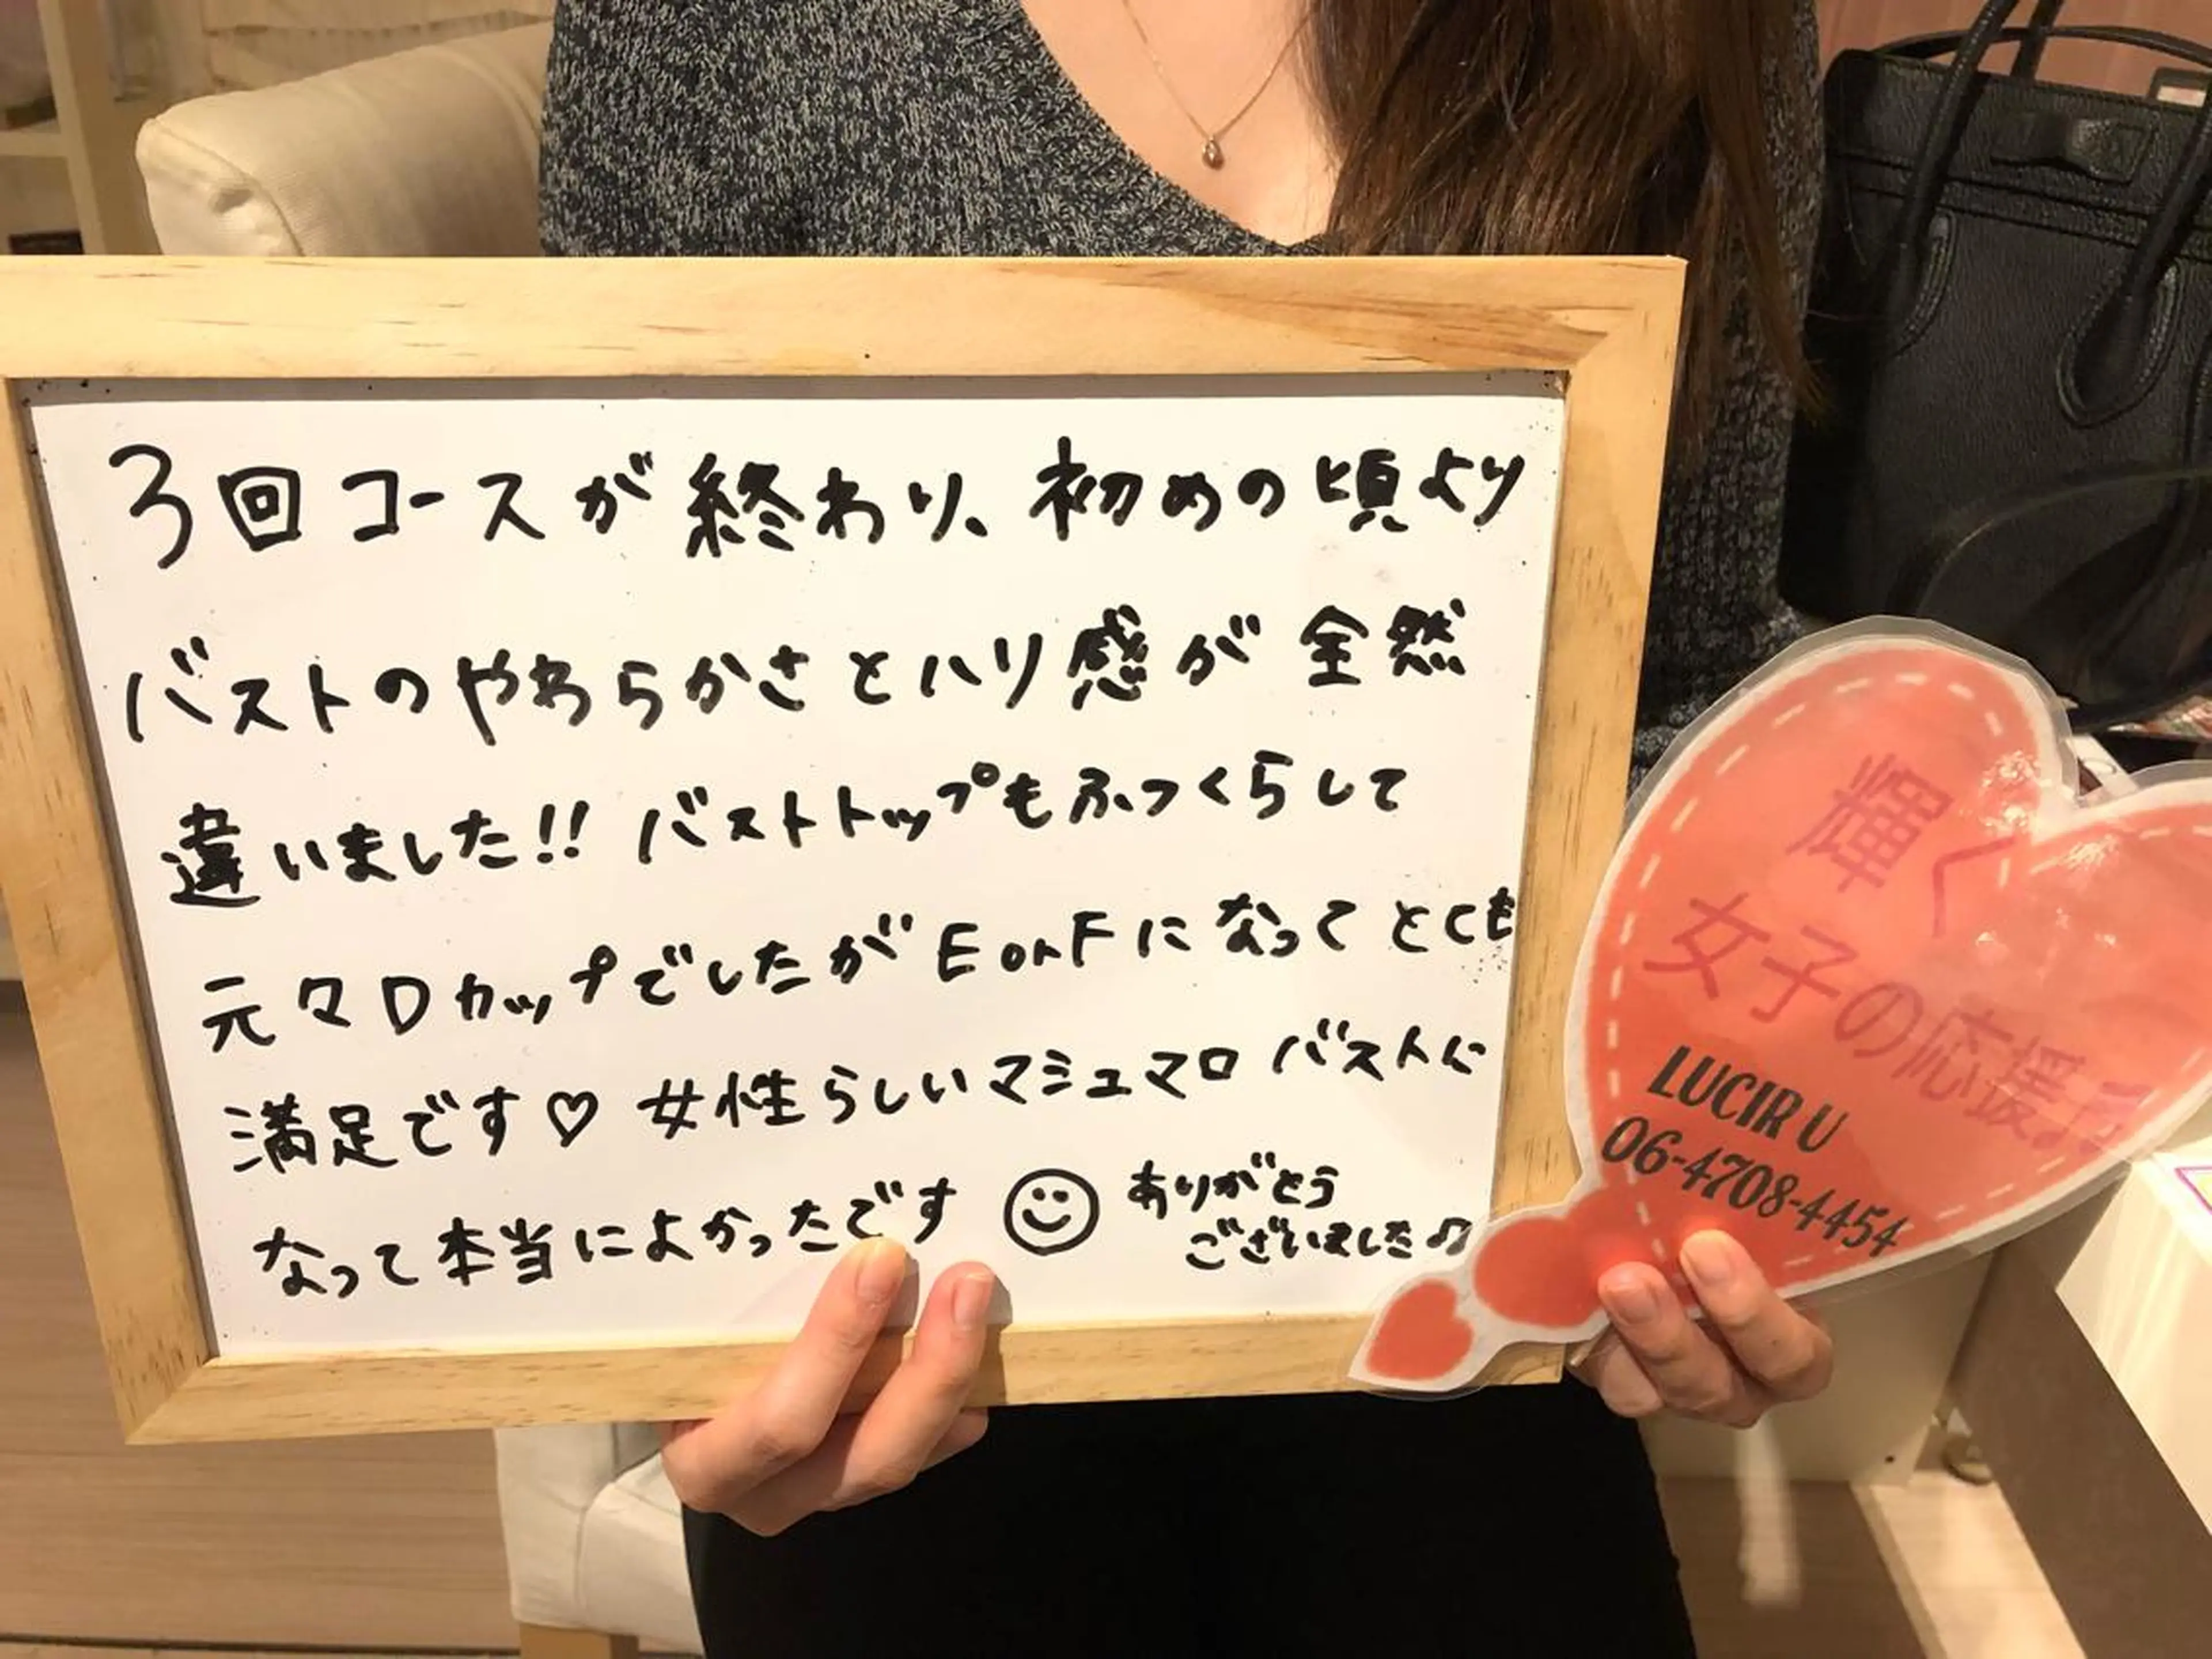 3回コースが終わり、初めの頃より
バストのやわらかさとハリ感が全然
違いました!! バストトップもふっくらして
元々Dカップでしたが E or F になって とても
満足です♡ 女性らしいマシュマロ バストに
なって本当によかったです ☺ ありがとう
ございました♫
輝く
女子の応援
LUCIR U
06-4708-4454